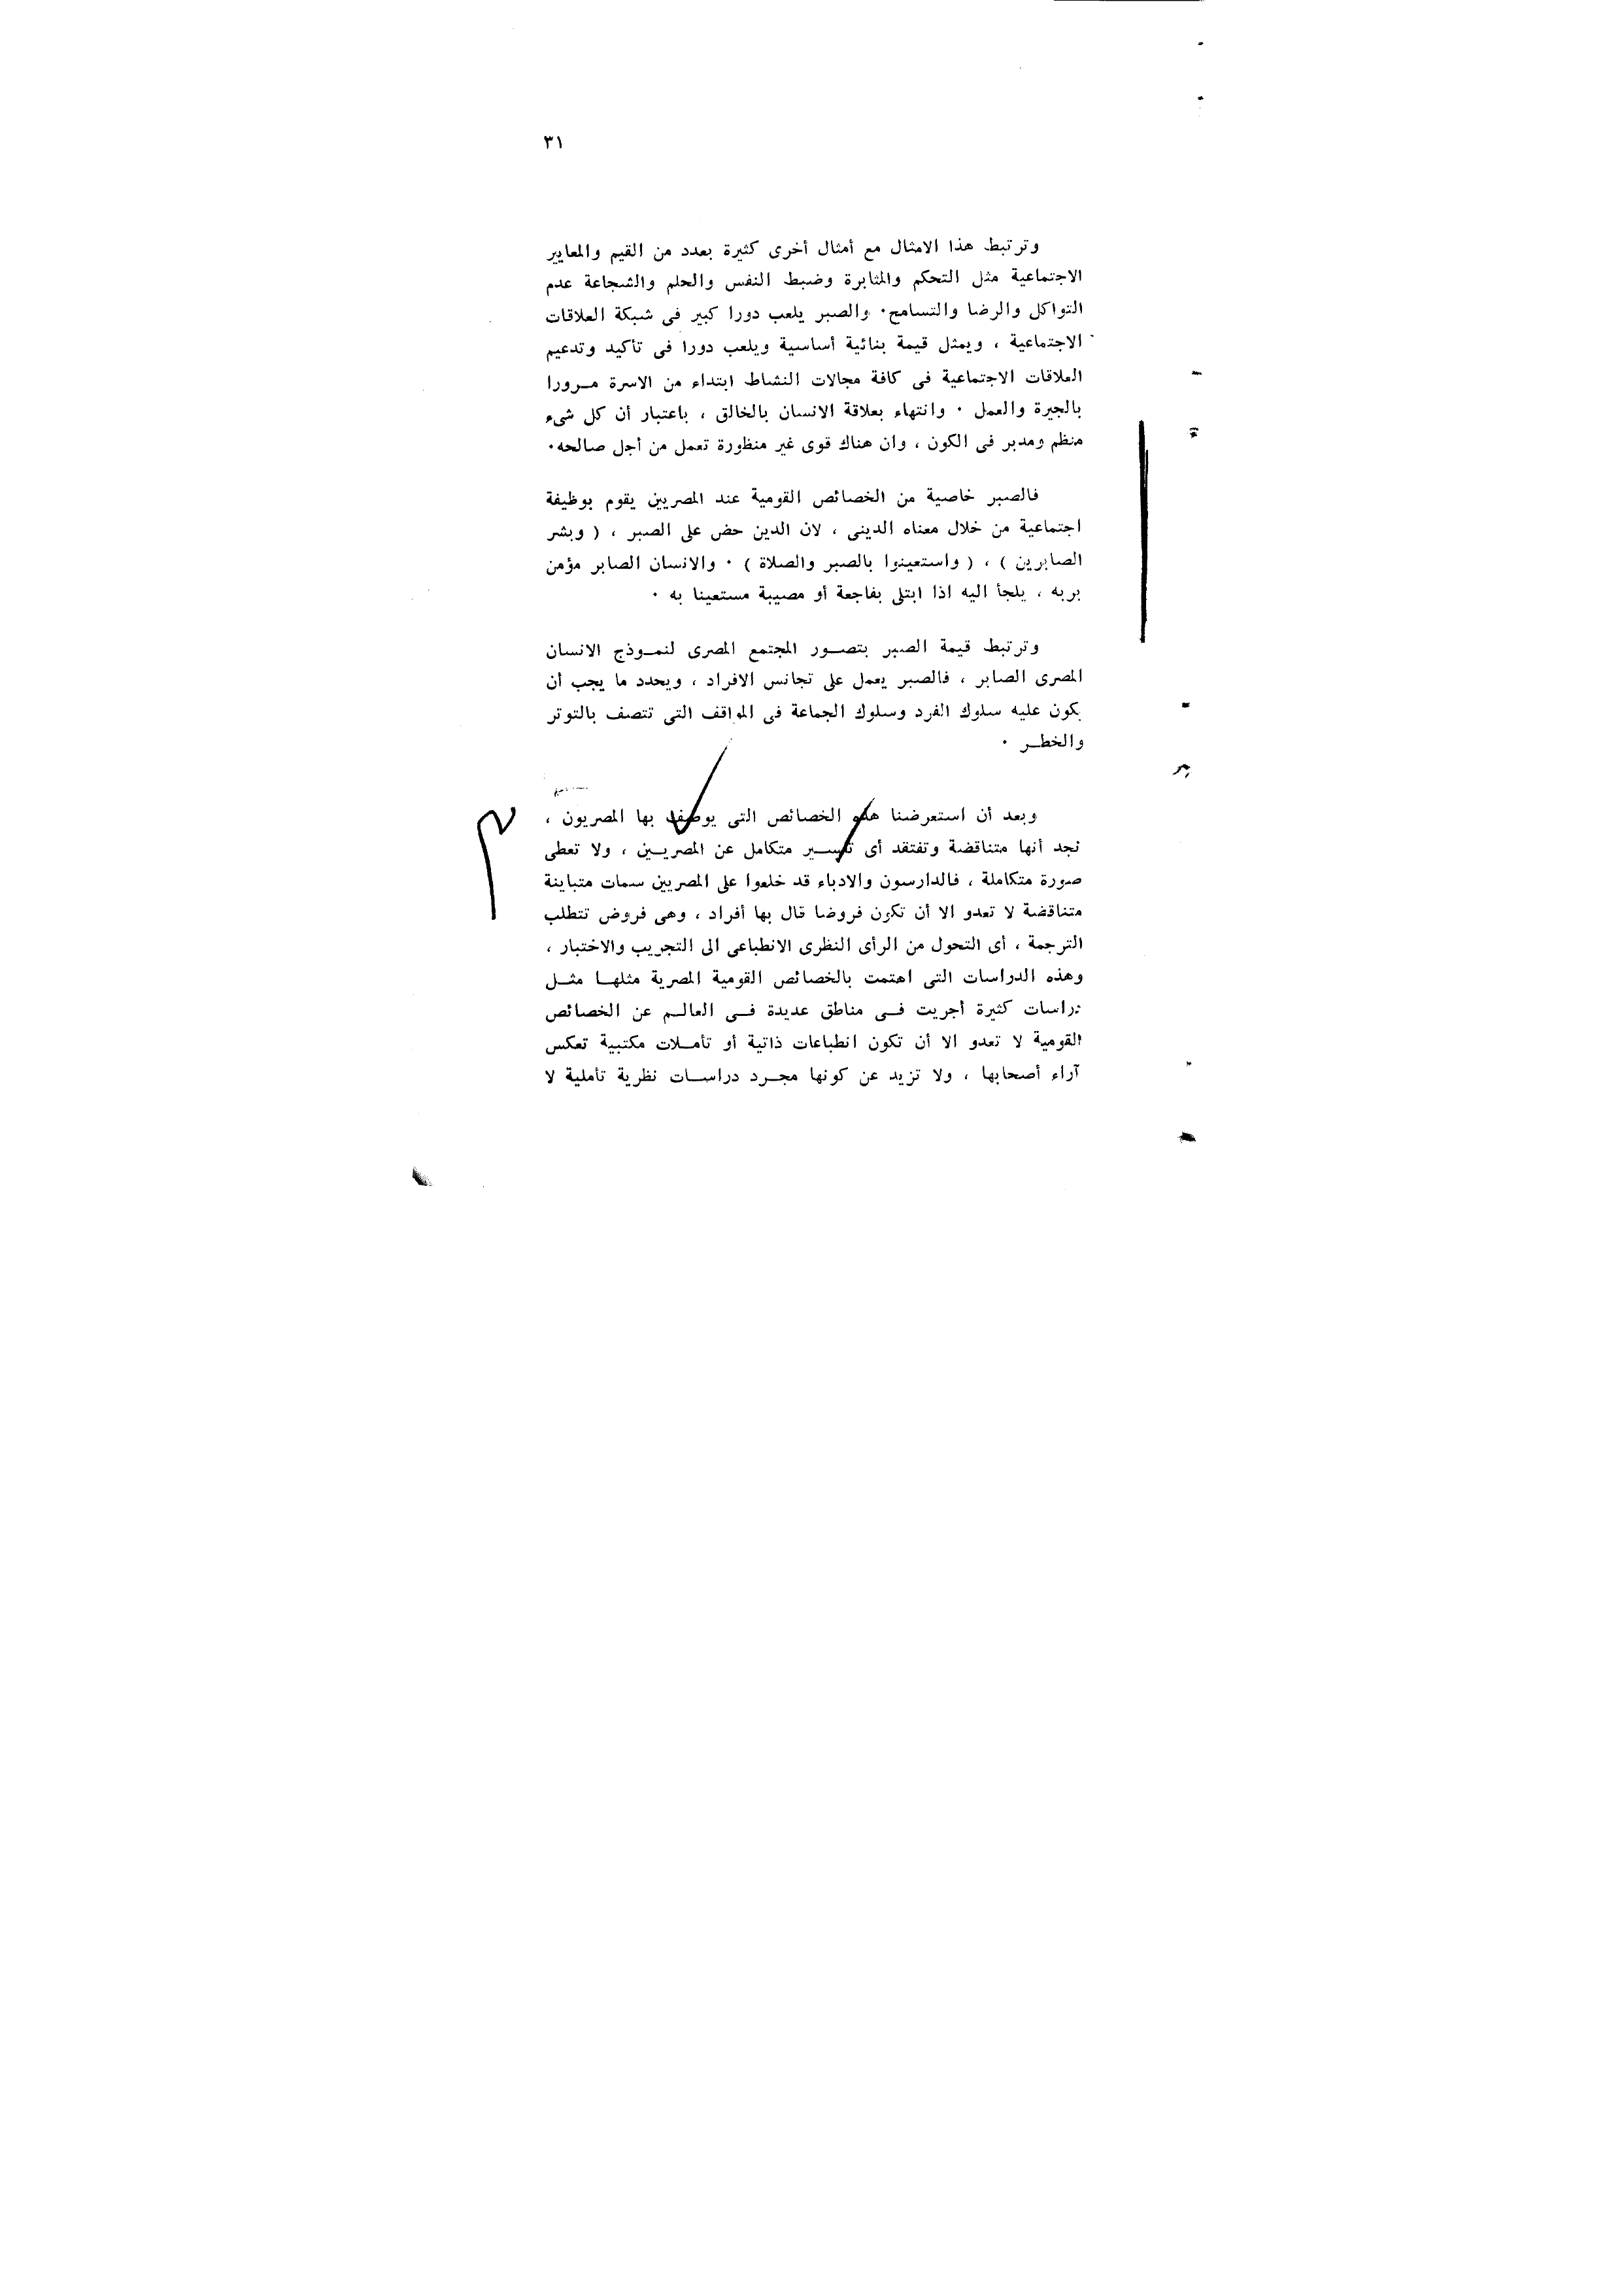 ٣١
وترتبط هذا الامثال مع أمثال أخرى كثيرة بعدد من القيم والمعايير
الاجتماعية مثل التحكم والمثابرة وضبط النفس والحلم والشجاعة عدم
التواكل والرضا والتسامح٠ والصبر يلعب دورا كبير فى شبكة العلاقات
الاجتماعية ، ويمثل قيمة بنائية أساسية ويلعب دورا فى تأكيد وتدعيم
العلاقات الاجتماعية فى كافة مجالات النشاط ابتداء من الاسرة مـرورا
بالجيرة والعمل ٠ وانتهاء بعلاقة الانسان بالخالق ، باعتبار أن كل شىء
منظم ومدبر فى الكون ، وان هناك قوى غير منظورة تعمل من أجل صالحه٠
فالصبر خاصية من الخصائص القومية عند المصريين يقوم بوظيفة
اجتماعية من خلال معناه الدينى ، لان الدين حض على الصبر ، ( وبشر
الصابرين ) ، ( واستعينوا بالصبر والصلاة ) ٠ والانسان الصابر مؤمن
بربه ، يلجأ اليه اذا ابتلى بفاجعة أو مصيبة مستعينا به ٠
وترتبط قيمة الصبر بتصـور المجتمع المصرى لنمـوذج الانسان
المصرى الصابر ، فالصبر يعمل على تجانس الافراد ، ويحدد ما يجب أن
يكون عليه سلوك الفرد وسلوك الجماعة فى المواقف التى تتصف بالتوتر
والخطـر ٠
وبعد أن استعرضنا هذه الخصائص التى يوصف بها المصريون ،
نجد أنها متناقضة وتفتقد أى تفسـير متكامل عن المصريـين ، ولا تعطى
صورة متكاملة ، فالدارسون والادباء قد خلعوا على المصريين سمات متباينة
متناقضة لا تعدو الا أن تكون فروضا قال بها أفراد ، وهى فروض تتطلب
الترجمة ، أى التحول من الرأى النظرى الانطباعى الى التجريب والاختبار ،
وهذه الدراسات التى اهتمت بالخصائص القومية المصرية مثلهـا مثـل
دراسات كثيرة أجريت فـى مناطق عديدة فـى العالـم عن الخصائص
القومية لا تعدو الا أن تكون انطباعات ذاتية أو تأمـلات مكتبية تعكس
آراء أصحابها ، ولا تزيد عن كونها مجـرد دراسـات نظرية تأملية لا